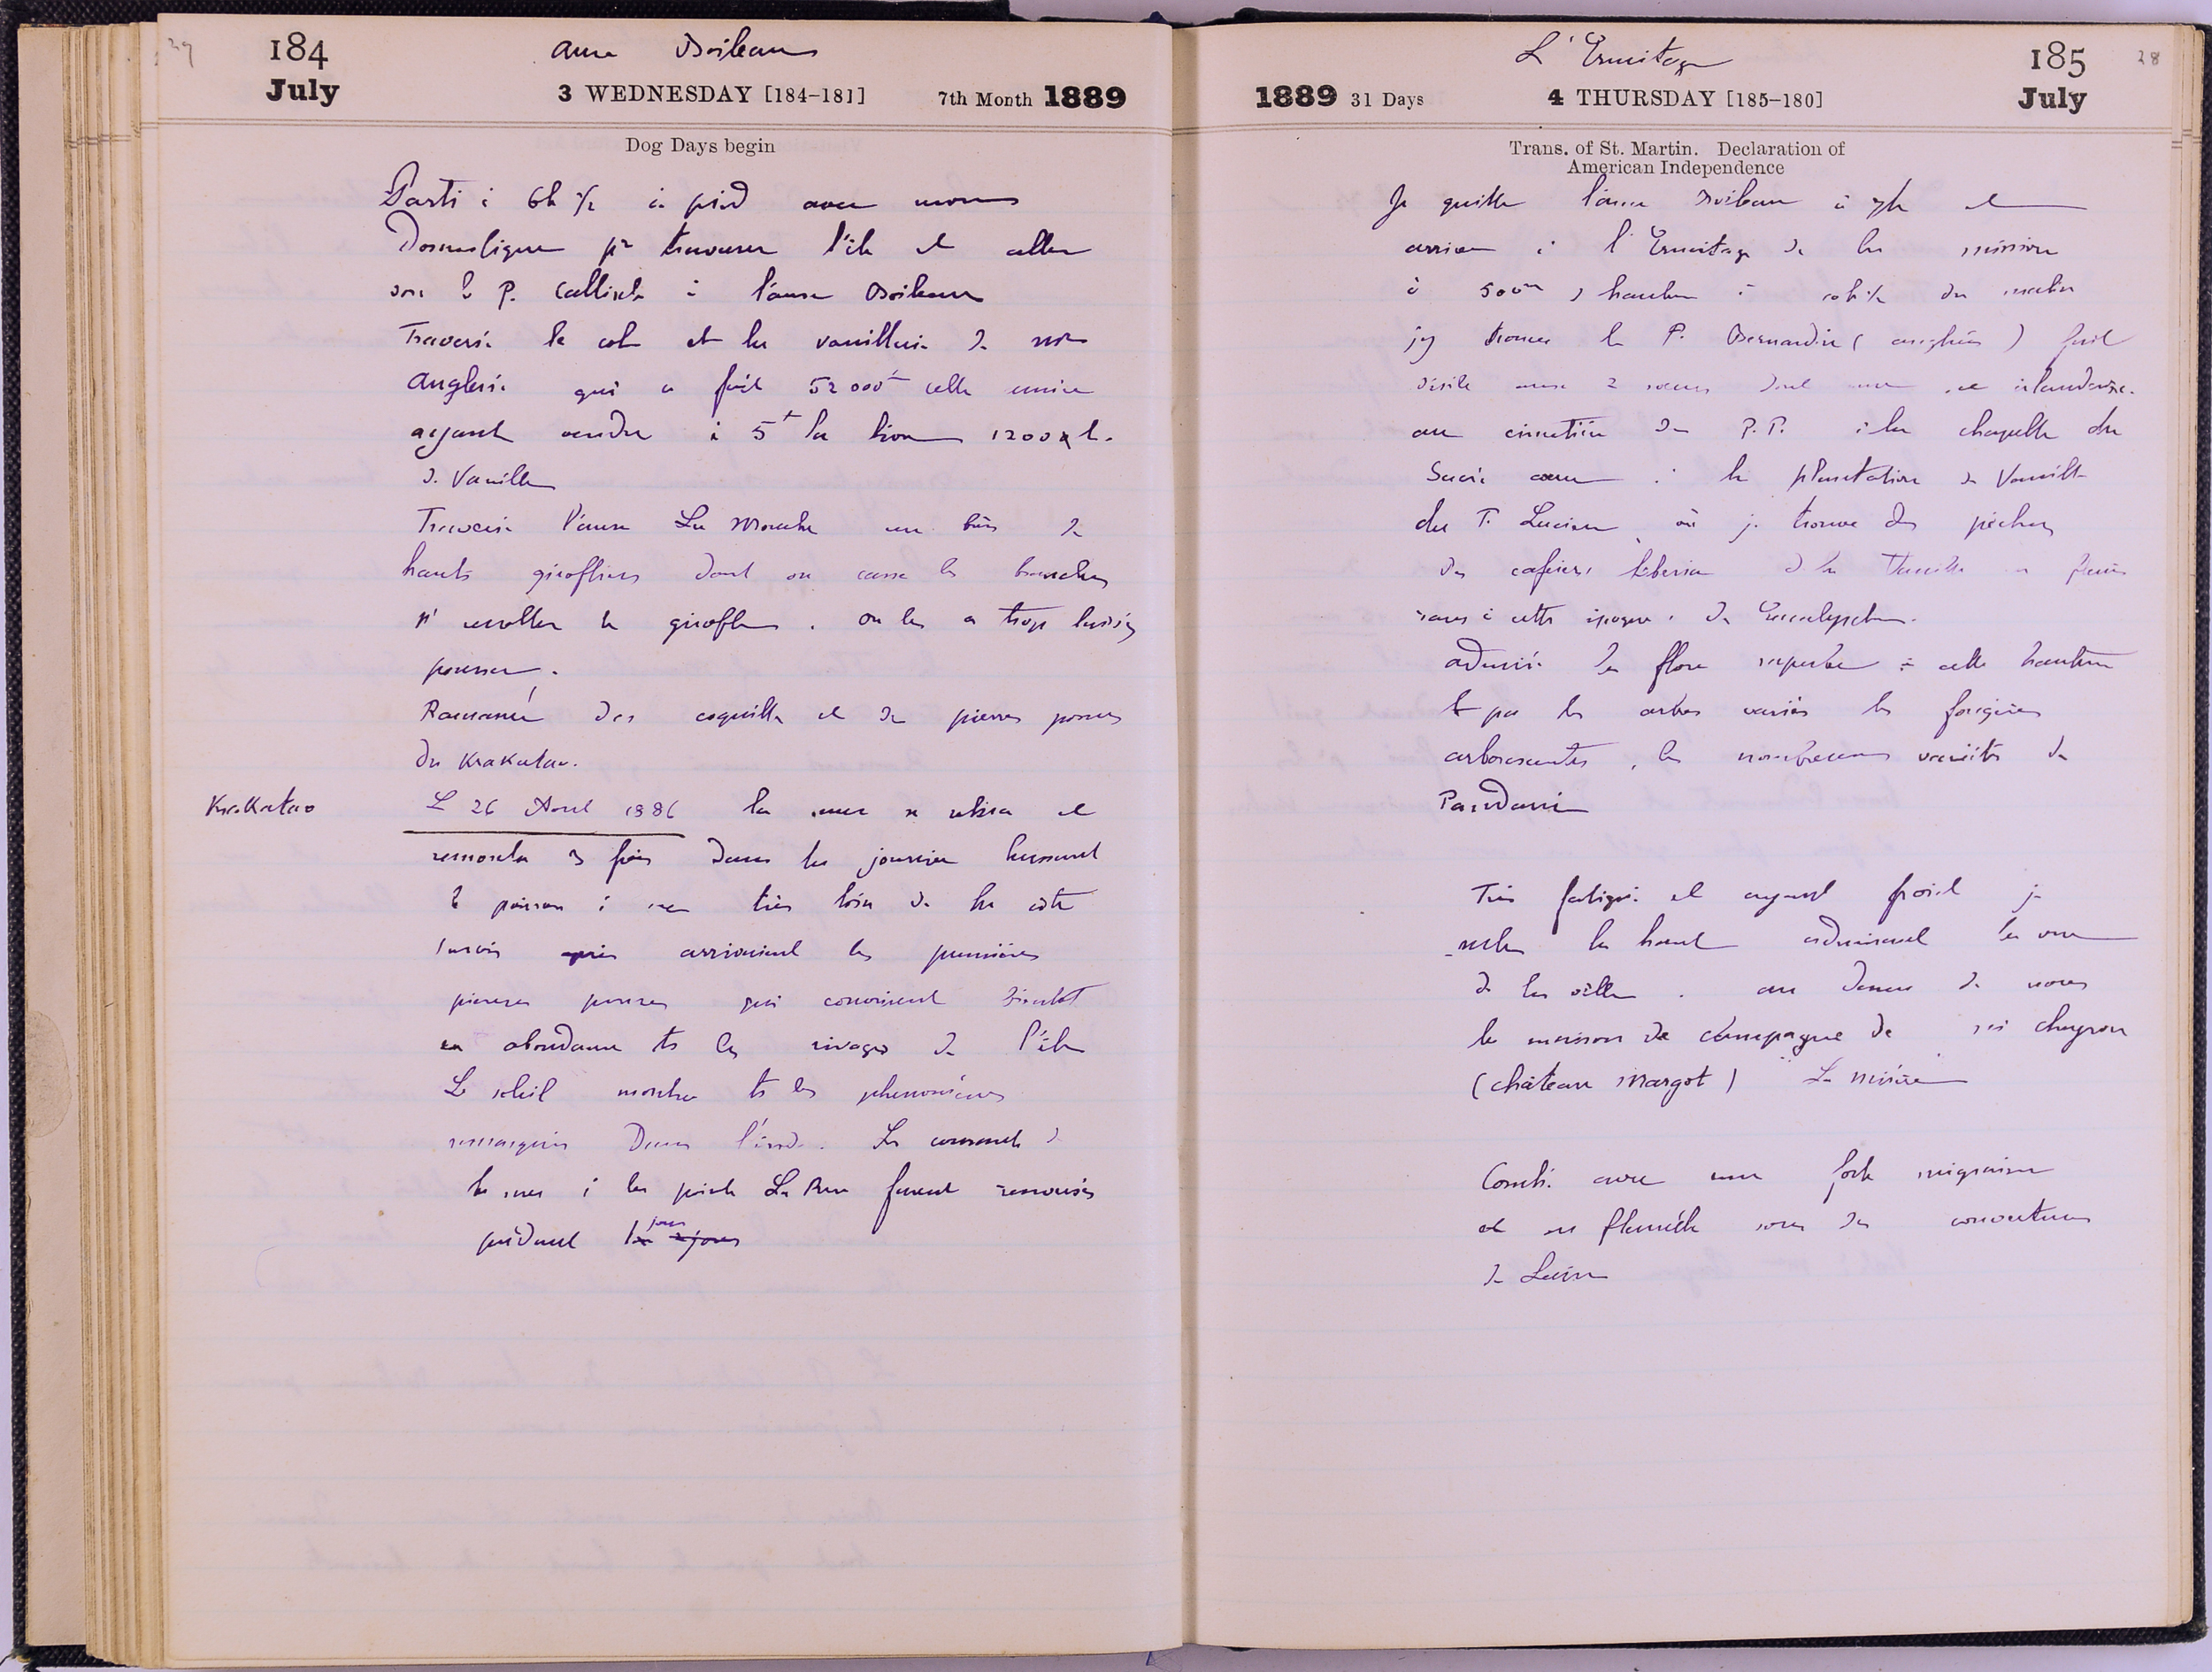 184
July
Anse Boileau
3 WEDNESDAY [184-181]
7th Month 1889
Dog Days begin
Parti à 6h ½ à pied avec mon
Domestique pr traverser l'île et aller
voir le P. Callixte à l'anse Boileau
Traversé le col et la vanillerie de
Anglais qui a fait 52 000 cette année
ayant vendu à 5 la livre 1200 l.
de Vanille
Traversé l'anse La Mouche un bois de
hauts girofliers dont on casse les branches
pr recolter le girofle. on les a trop laissés
pousser.
Ramassé des coquilles et des pierres ponces
du Krakatau.
Krakatao
Le 26 Aout 1886 la mer se retira et
remonta 3 fois dans la journée laissant
le poisson à sec très loin de la côte
1 mois après arrivaient les premières
pierres ponces qui couvrirent bientôt
en abondance ts les rivages de l'île
Le soleil montra ts les phenomènes
remarqués Dans l'inde. Les courants de
la mer à la pointe La Rue furent renversés
pendant jours
1889 31 Days
L'Ermitage
4 THURSDAY [185-180]
185
July
28
Trans. of St. Martin. Declaration of
American Independence
Je quitte l'anse Boileau à 7h et
arrive à l'Ermitage de la mission
à 500m de hauteur à du matin
j'y trouve le P. Bernardin (anglais) fait
visite aux 2 soeurs dont une est irlandaise.
au cimetière des P.P. à la chapelle du
Sacré coeur à la plantation de Vanille
du P. Lucien où je trouve des pêchers
des cafiers liberia de la Vanille en fleurs
rares à cette époque. des Eucalyptus.
admiré la flore superbe à cette hauteur
les arbres variés les fougères
arborescentes, les nombreuses variétés de
Pandani
Très fatigué et ayant froid je
reste là haut admirant la vue
de la ville. au dessus de nous
la maison de campagne de chayron
(château Margot) La misère
Couché avec une forte migraine
et en flanelle sous des couvertures
de Laine